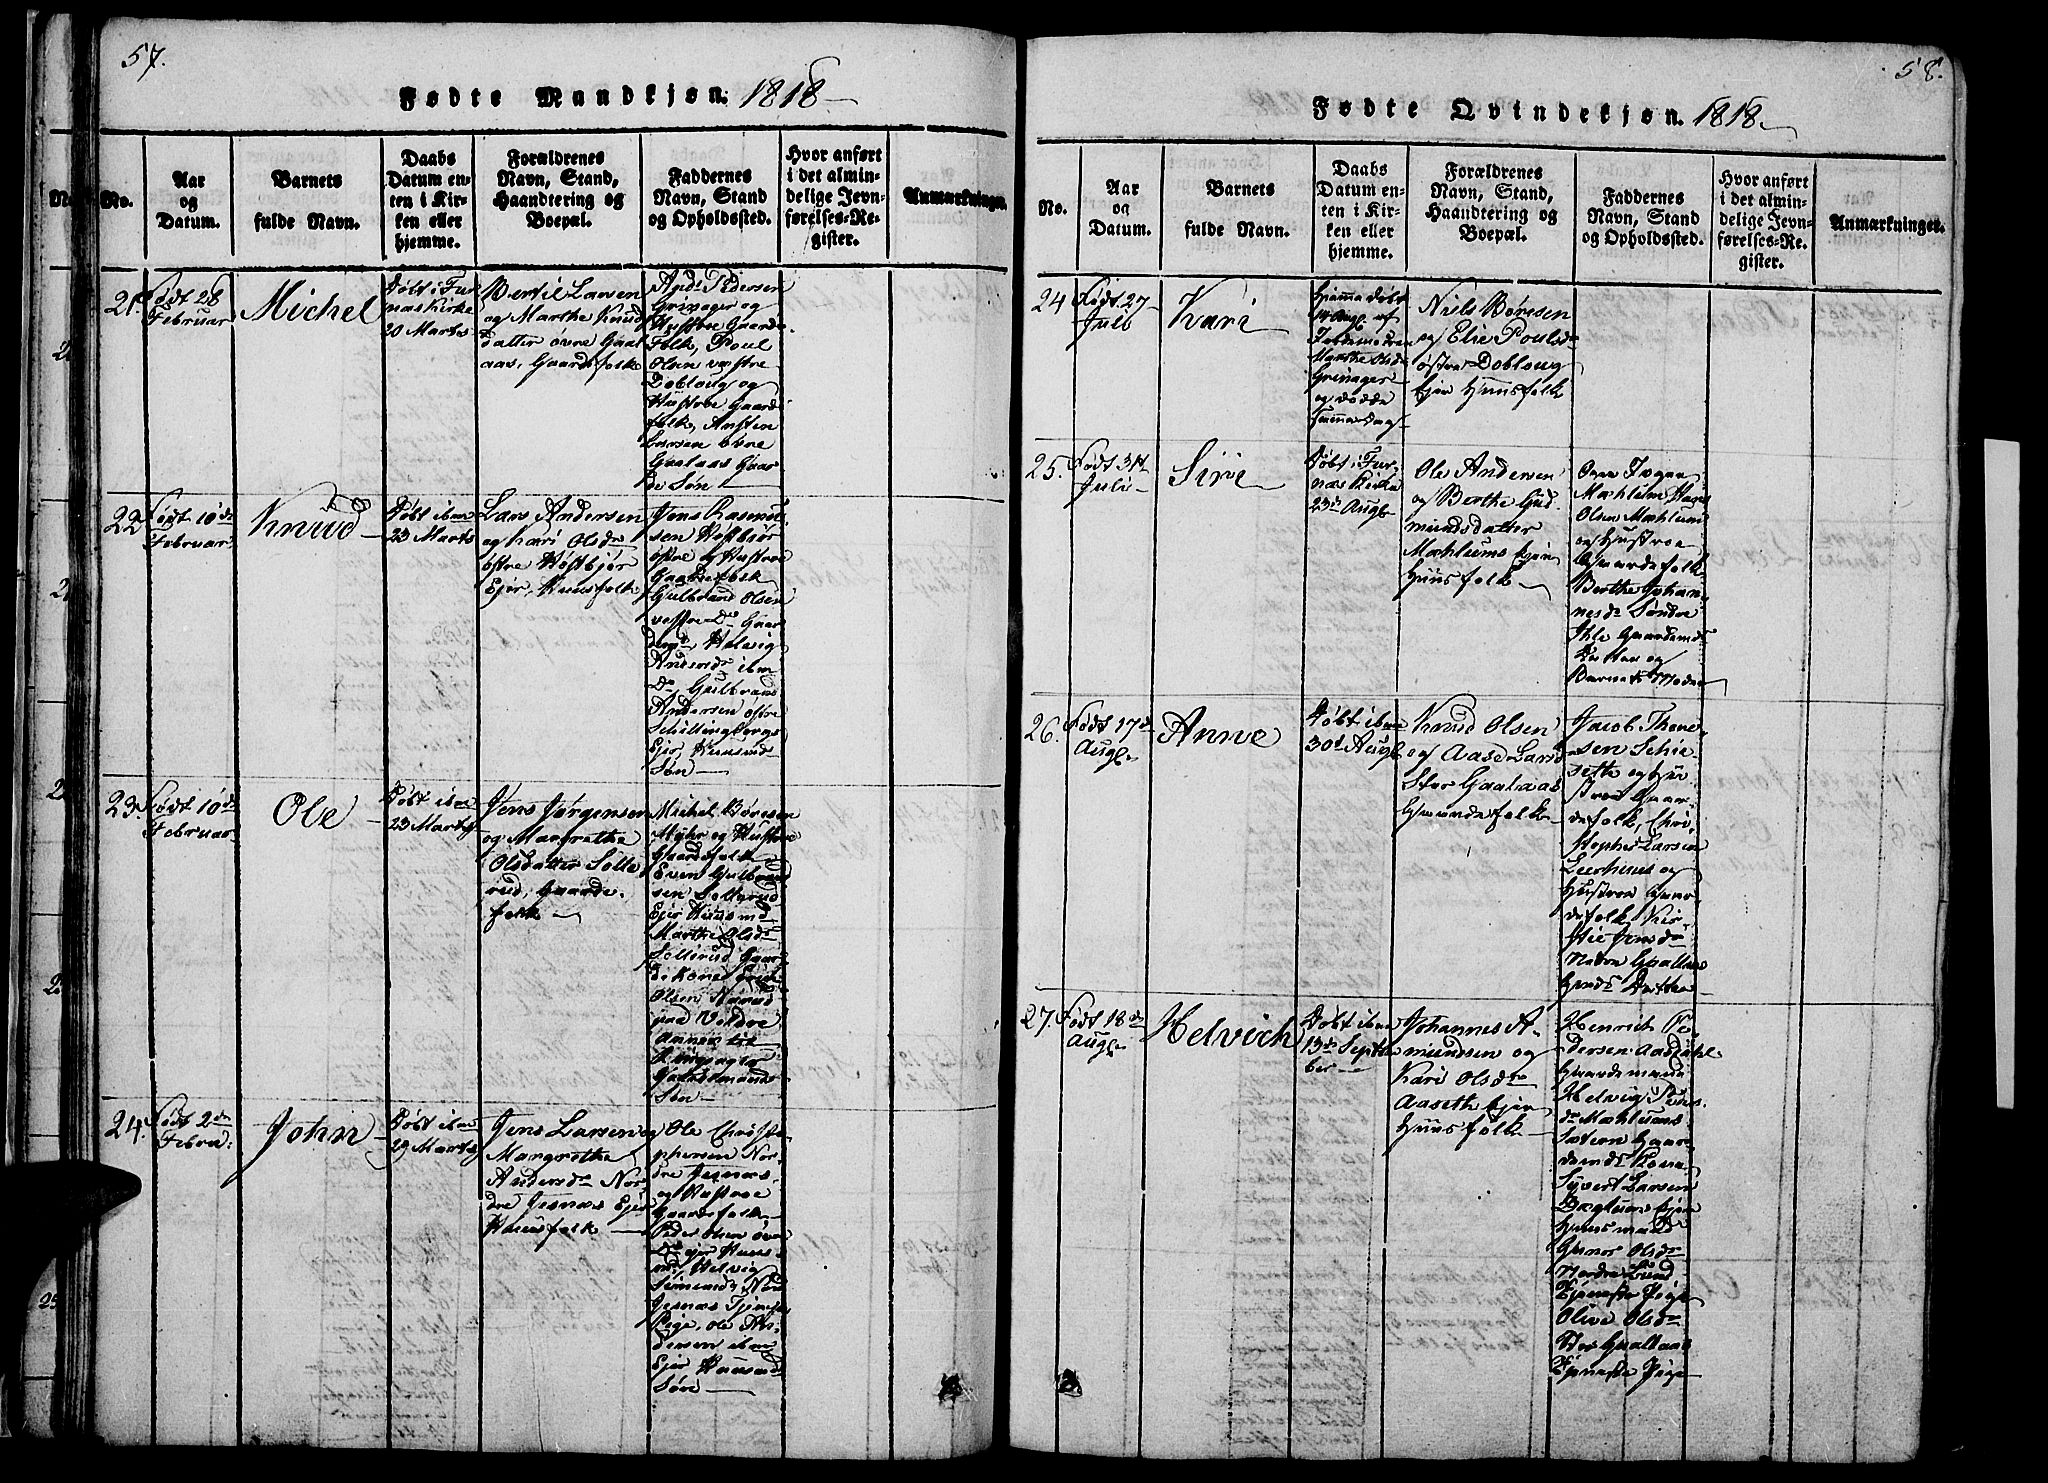 57.
Fødte Mandkjøn. 1818
No.
Aar
og
Datum.
Barnets
fulde Navn.
Daabs
Datum en-
ten i Kir-
ken eller
hjemme.
Forældrenes
Navn, Stand,
Haandtering og
Boepæl.
Faddernes
Navn, Stand
og Opholdssted.
Hvor anført
i det almin-
delige Jevn-
førelses-Re-
gister.
Anmærkninger.
21. Født 28
Februar
Michel
Døbt i Fur-
næs Kirke
20 Marts
Bertil Larsen
og Marthe Knud
datter øvre Gaal
aas, Gaardfolk
And: Pedersen
Grinager og
Hustroe Gaard-
folk, Poul
Olsen væstre
Dobloug og
Hustroe Gaard
folk, Austen
Larsen øvre
Gaalaas Gaar
de Søn
22 Født 10de
Februar
Knud
Døbt ibm
23 Marts
Lars Andersen
og Kari Olsdr
østre Høstbjør
Ejer, Huusfolk
Jens Rasmu-
sen Høstbjør
østre og Hustroe
Gaardefolk
Gulbrand Olsen
vestre Do Gaar
demd Helvig
Andersdr ibm
Do Gulbrand
Andersen østre
Schillingbergs
Ejer, Huusmds
Søn
23. Født 10de
Februar
Ole
Døbt ibm
23 Marts
Jens Jørgensen
og Margrethe
Olsdatter Solle
rud, Gaarde-
folk
Michel Børesen
Myhr og Hustroe
Gaardsfolk
Even Gulbrand
sen Sollerud
Ejer Huusmd
Marthe Olsdr
Sollerud Gaar
de Kone
Olsen
paa Veldre
Gaardmands
Søn
24. Født 2den
Febru:
John
Døbt ibm
29 Marts
Jens Larsen og
Margrethe
Andersdr Nor
dre Jesnæs Ejer
Huusfolk
Ole Christo
phersen Nor-
dre Jesnæs
og Hustroe
Gaardefolk
Peder Olsen
Do ejer Huus-
md, Helvig
Simensdr
Jesnæs Tjeneste
Pige, Ole An-
dersen ibm
Ejer Huusmd
Søn
58.
Fødte Qvindekjøn. 1818.
No.
Aar
og
Datum.
Barnets
fulde Navn.
Daabs
Datum en-
ten i Kir-
ken eller
hjemme.
Forældrenes
Navn, Stand,
Haandtering og
Boepæl.
Faddernes
Navn, Stand
og Opholdssted.
Hvor anført
i det almin-
delige Jevn-
førelses-Re-
gister.
Anmærkninger.
24 Født 27
Juli
Kari
Hjemme døbt
af
Jordemoderen
Marthe Olsdr
Grinager
og døde
samme Dag
Niels Børesen
og Elie Poulsdr
østre Dobloug
Ejer Huusfolk
25. Født 31t
Juli
Siri
Døbt i Fur-
næs Kirke
23de Augt
Ole Andersen
og Berthe Gud-
mundsdatter
Mæhlums Ejer
Huusfolk
Mæhlum
Olsen Mæhlum
og Hustroe
Gaardefolk
Berthe Johan-
nesdr Søndre
Ihle Gaardmds
Datter og
Barnets Moder
26. Født 17de
Augt
Anne
Døbt ibm
30t Augt
Knud Olsen
og Aase Larsd
Stor Gaalaas
Gaardefolk
Jacob
sen Schie-
seth og Hu-
stroe Gaar-
defolk, Chri-
stopher Larsen
Leerhuus og
Hustroe Gaar-
defolk, Kir-
stie Jensdr
Nedre Gaallaas
Datter
27. Født 18de
Augt
Helvich
Døbt ibm
13de Septem
ber
Johannes A-
mundsen og
Kari Olsdr
Aaseth Ejer
Huusfolk
Henrich Pe-
dersen Aasdahl
Gaardemand
Helvig Peders-
dr Mæhlums
Sætern Gaar
demds Kone
Syvert Larsen
Dæhlum Ejer
Huusmand
Guner Olsdr
Nordre Lund
Tjeneste Pige
Olive Olsdr
Stor Gaallaas
Tjeneste Pige